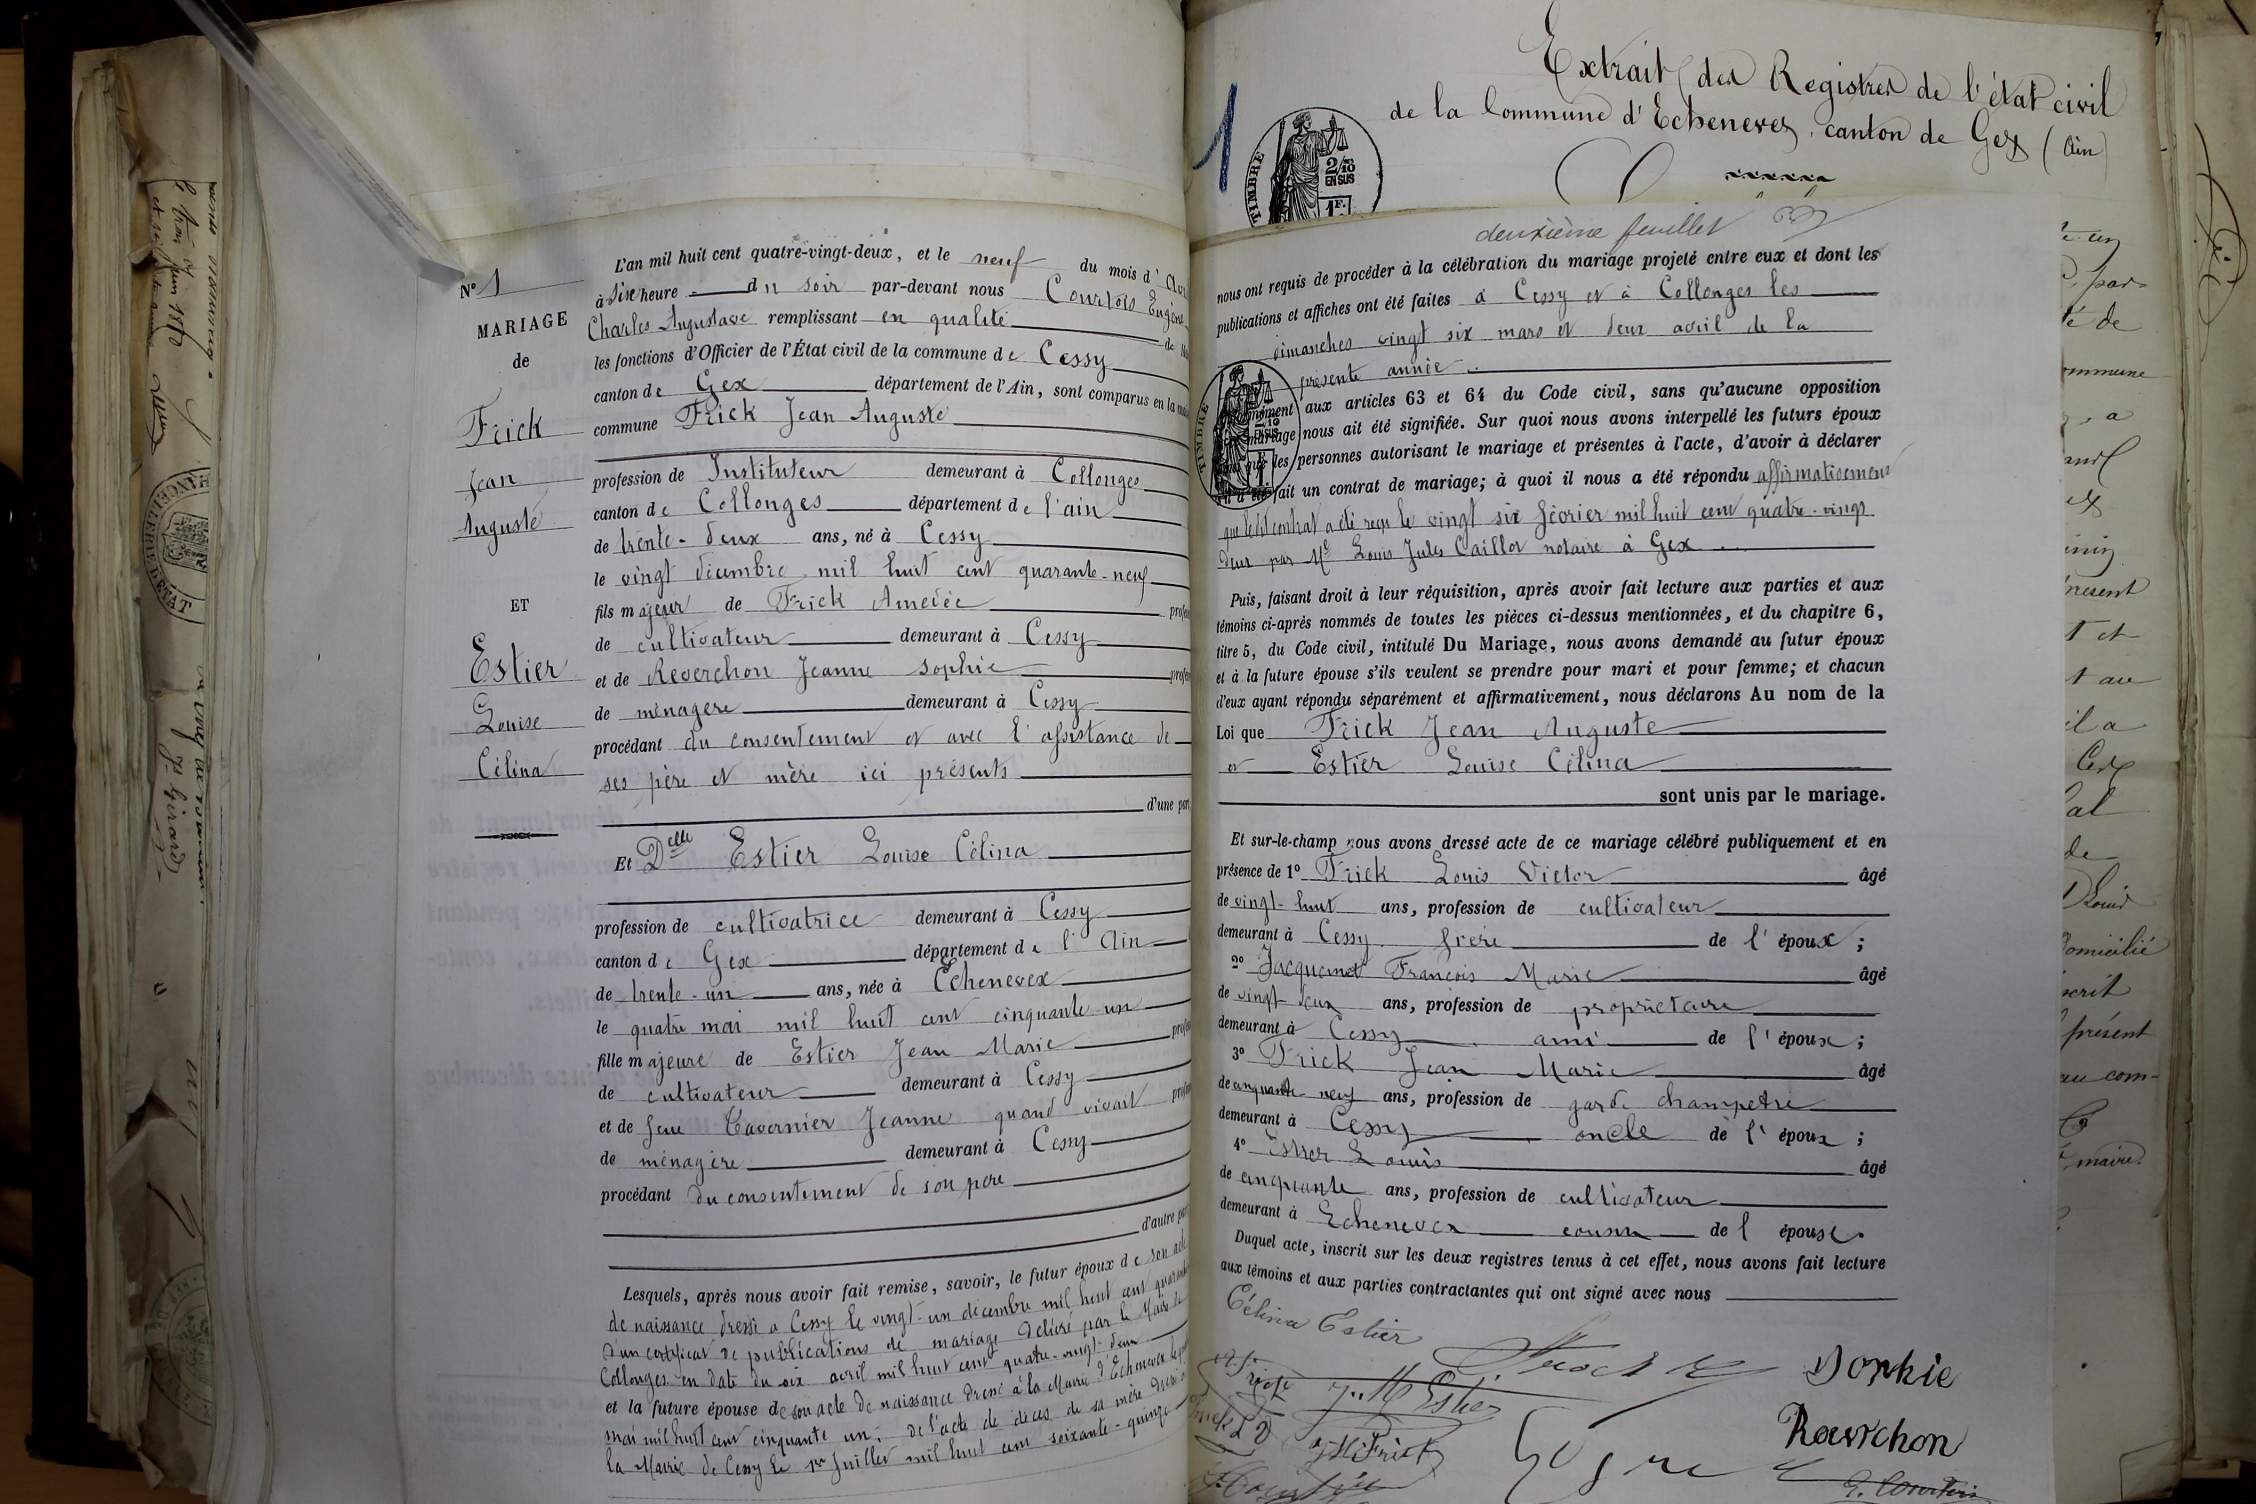 Extrait des Registres de l'état civil
de la Commune d'Echenevex, canton de Gex (Ain)
1
TIMBRE
2/10
EN SUS
1F.
N° 1
MARIAGE
de
Frick
Jean
Auguste
ET
Estier
Louise
Célina
L'an mil huit cent quatre-vingt-deux, et le neuf du mois d'
à Six heure du soir par-devant nous Courtois Eugène
Charles Augustave remplissant en qualité
les fonctions d'Officier de l'État civil de la commune de Cessy
canton de Gex département de l'Ain, sont comparus en la
commune Frick Jean Auguste
profession de Instituteur demeurant à Collonges
canton de Collonges département de l'ain
de trente-deux ans, né à Cessy
le vingt décembre mil huit cent quarante-neuf
fils majeur de Frick Amedée
de cultivateur demeurant à Cessy
et de Reverchon Jeanne Sophie
de ménagère demeurant à Cessy
procédant du consentement et avec l'assistance de
ses père et mère ici présents
d'une part
Et Delle Estier Louise Célina
profession de cultivatrice demeurant à Cessy
canton de Gex département de l'Ain
de trente-un ans, née à Echenevex
le quatre mai mil huit cent cinquante-un
fille majeure de Estier Jean Marie
de cultivateur demeurant à Cessy
et de feue Tavernier Jeanne quand vivait
de ménagère demeurant à Cessy
procédant du consentement de son père
d'autre part
Lesquels, après nous avoir fait remise, savoir, le futur époux de son acte
de naissance dressé à Cessy le vingt-un décembre mil huit cent
d'un certificat de publications de mariage délivré par le Maire de
Collonges en date du six avril mil huit cent quatre-vingt-deux
et la future épouse de son acte de naissance dressé à la Mairie d'Echenevex
mai mil huit cent cinquante un, de l'acte de décès de sa mère
la Mairie de Cessy le 1er Juillet mil huit cent soixante-quinze
deuxième feuillet
nous ont requis de procéder à la célébration du mariage projeté entre eux et dont les
publications et affiches ont été faites à Cessy et à Collonges les
dimanches vingt six mars et deux avril de la
présente année
TIMBRE
aux articles 63 et 64 du Code civil, sans qu'aucune opposition
mariage nous ait été signifiée. Sur quoi nous avons interpellé les futurs époux
les personnes autorisant le mariage et présentes à l'acte, d'avoir à déclarer
fait un contrat de mariage; à quoi il nous a été répondu affirmativement
que ledit contrat a été reçu le vingt six février mil huit cent quatre-vingt
deux par Me Louis Jules Caillot notaire à Gex
Puis, faisant droit à leur réquisition, après avoir fait lecture aux parties et aux
témoins ci-après nommés de toutes les pièces ci-dessus mentionnées, et du chapitre 6,
titre 5, du Code civil, intitulé Du Mariage, nous avons demandé au futur époux
et à la future épouse s'ils veulent se prendre pour mari et pour femme; et chacun
d'eux ayant répondu séparément et affirmativement, nous déclarons Au nom de la
Loi que Frick Jean Auguste
et Estier Louise Célina
sont unis par le mariage.
Et sur-le-champ nous avons dressé acte de ce mariage célébré publiquement et en
présence de 1° Frick Louis Victor âgé
de vingt-huit ans, profession de cultivateur
demeurant à Cessy frère de l'époux;
2° Jacquemet François Marie âgé
de vingt-deux ans, profession de propriétaire
demeurant à Cessy ami de l'époux;
3° Frick Jean Marie âgé
de cinquante neuf ans, profession de garde champetre
demeurant à Cessy oncle de l'époux;
4° Estier Louis âgé
de cinquante ans, profession de cultivateur
demeurant à Echenevex cousin de l épouse.
Duquel acte, inscrit sur les deux registres tenus à cet effet, nous avons fait lecture
aux témoins et aux parties contractantes qui ont signé avec nous
Célina Estier
A. Frick
J. M Estier
Sophie
Reverchon
J M Frick